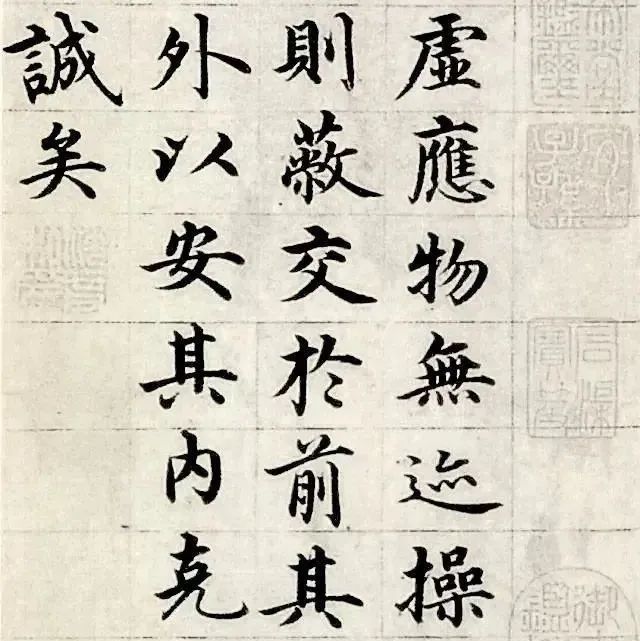 虛應物無迹操
則蔽交於前其
外以安其內克
誠矣